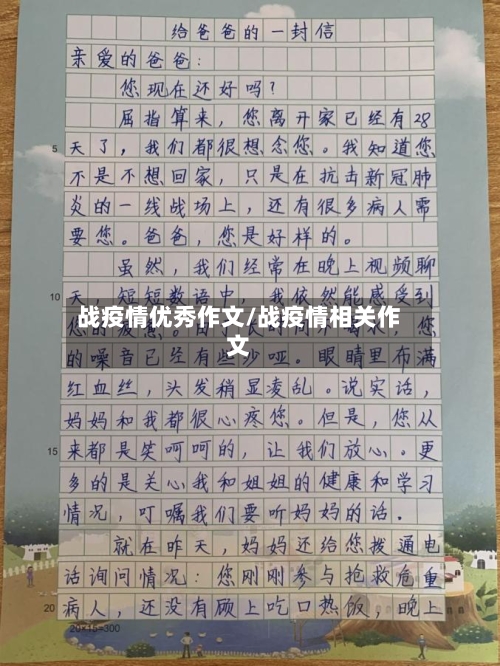 给爸爸的一封信
亲爱的爸爸：
您现在还好吗？
屈指算来，您离开家已经有28
5 天了，我们都很想念您。我知道您
不是不想回家，只是在抗击新冠肺
炎的一线战场上，还有很多病人需
要您。爸爸，您是好样的。
虽然，我们经常在晚上视频聊
10 天，短短数语中，我依然能感受到
战疫情优秀作文/战疫情相关作
文
的噪音已经有些沙哑。眼睛里布满
红血丝，头发稍显凌乱。说实话，
妈妈和我都很心疼您。但是，您从
15 来都是笑呵呵的，让我们放心。更
多的是关心我和姐姐的健康和学习
情况，叮嘱我们要听妈妈的话。
就在昨天，妈妈还给您拨通电
话询问情况：您刚刚参与抢救危重
20 病人，还没有顾上吃口热饭，晚上
20×15=300